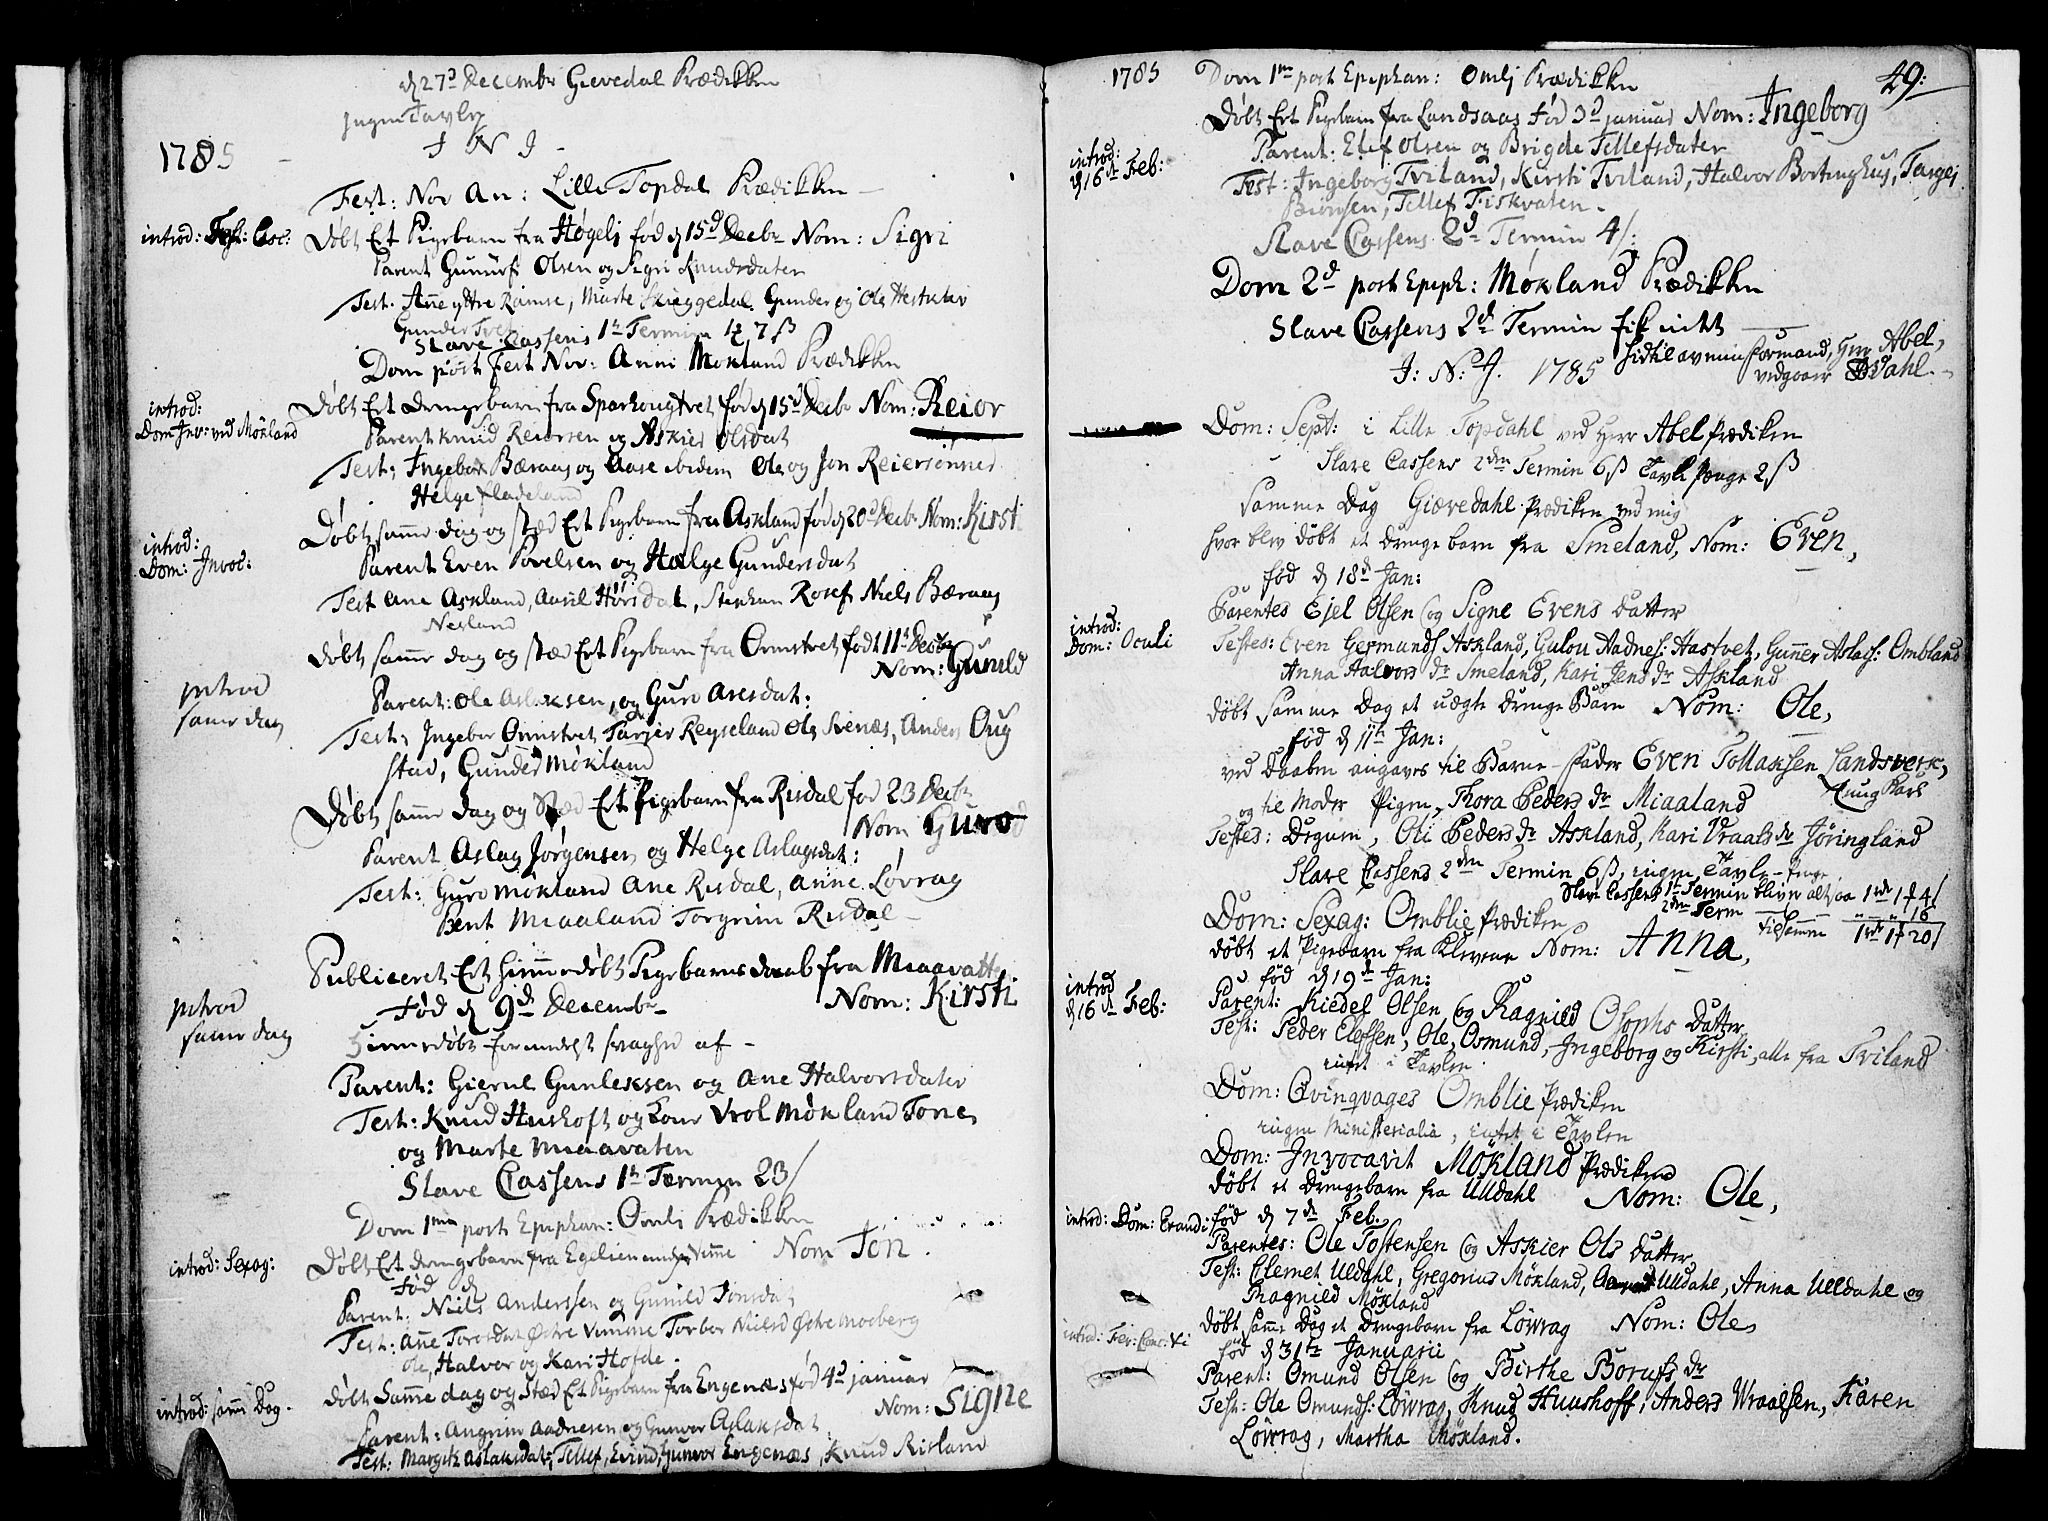 d 27d Decembr Gievedal Prædikken
Ingen Tavle
1785
I N J
Fest: Nov An: Lille Topdal Prædikken
introd: Fest: Casc:
Døbt Et Pigebarn fra Høgeli fød d 15d Decbr Nom: Sigri
Parent Gunuf Olsen og Sigri Knudsdater
Test. Anne yttre Ramse, Marte Skieggedal Gunder og Ole Hestklev
Gunder Tveit
Slave Cassens 1te Termin 7 ß
Dom post Fest Nov: Anni Mokland Prædikken
introd:
Dom Inv: ved Mokland
Døbt Ert drengebarn fra Sparhougtvet fød d 15d Decbr Nom: Reior
Parent Knud Reiorsen og Askier Olsdat
Test: Ingebor Bæraas og Aase ibidem Ole og Jon Reiersønner
Helge fladeland
introd:
Dom: Invoc:
Døbt samme dag og stæd Ert Pigebarn fra Askland fød d 20d Decbr Nom: Kirsti
Parent Even Povelsen og Hælge Gundersdat
Test Ane Askland, Aasil Horsdal, Stephan Rosef Niels Bæraas
Nesland
Døbt samme dag og stæd Ert Pigebarn fra Ormtvet født 11te Decbr
Nom: Gunild
introd
samme dag
Parent: Ole Aslaksen, og Guro Aresdat:
Test: Ingebor Ormtvet Tarjer Reyseland Ole Svenæs, Anders Oug
stad, Gunder Mokland
Døbt samme dag og Stæd Ert Pigebarn fra Risdal fød 23 Decbr
Nom Guro
Parent Aslag Jørgensen og Helge Aslagsdat:
Test: Guro Mokland Ane Risdal, Anne Løvrag
Bent Miaaland Torgrim Risdal
Publiceret Ert hiemmedøbt Pigebarns daab fra Miaavatten
introd
samme dag
Fød d 9d Decembr
Nom: Kirsti
hiemmedøbt formedelst svaghed af
Parent: Gierul Gunleksen og Ane Halvorsdater
Test: Knud Hushoft og Kone Vrol Mokland Tone
og Marte Miaavaten
Slave Cassens 1te Termin 23/
Dom 1ma post Epiphan: Omli Prædikken
introd: Sexag:
Døbt Ert drengebarn fra Egelien under Vimme Nom Jon
Fød d
Parent: Niels Anderssen og Gunild Jonsdat
Test: Anne Toresdat Østre Vimme Torbor Nield Østre Moeberg
Ole, Halvor og Kari Hofde.
introd: samme Dag.
Døbt Samme dag og Stæd Et Pigebarn fra Engenæs fød 4d januar
Nom: Signe
Parent: Angrim Aadnesen og Gunvor Aslaksdat
Test: Margith Aslaksdat: Tellef, Evind, Gunvor Engenæs, Knud Risland
1785
49:
Dom 1ma post Epiphan: Omli Prædikken
Døbt Ert Pigebarn fra Landsaas fød 3d januar Nom: Ingeborg
introd:
d 16de Feb:
Parent: Elef Olsen og Brigde Tellefsdater
Test: Ingeborg Tviland, Kirsti Tviland, Halvor Bortinghus, Targej
Biønsen, Tellef Fiskvaten.
Slave Cassens 2d Termin 4/:
Dom 2d post Epiph: Mokland Prædikken
Slave Cassens 2d Termin fik intet
hidtil av min Formand, Herr Abel,
vedgaaer Dahl.
J: N: J. 1785
Dom: Sept: i Lille Topdahl ved Herr Abel Prædiken
Slave Cassens 2den Termin 6ß Tavle Penge 2ß
samme Dag Giævedahl Prædiken ved mig
hvor blev døbt et drenge barn fra Smeland, Nom: Even,
fød d 18d Jan:
introd:
Dom: Oculi
Parentes Ejel Olsen og Signe Evens datter
Testes: Even Germunds Askland, Gulou Aadnes: Hastvet, Gunner Aslachs: Ombland
Anna Halvors dr Smeland, Kari Jens dr Askland
døbt samme Dag et uægte Drenge Barn Nom: Ole,
fød d 11te Jan:
ved daaben angaves til Barne-Fader Even Tollaksen Landsverk,
ung Karl
og til Moder Pigen, Thora Peders dr Miaaland
Testes: Degnen, Oli Peders dr Askland, Kari Vraals dr Jøringland
Slave Cassens 2den Termin 6ß, ingen Tavle-Penge
Slave Cassens 1te Termin bliver altsaa 1rd 1 4/
2den Term 16
tilsamme 1rd 1 20/
Dom: Sexag: Omblie Prædiken
døbt et Pigebarn fra Klevene Nom: Anna,
introd
d 16de Feb:
fød d 19d Jan:
Parent: Kiedel Olsen og Ragnild Osophs Datter
Test: Peder Elefsen, Ole, Osmund, Ingeborg og Kirsti, alle fra Tviland
intet i Tavlen
Dom: Qvinqvages Omblie Prædiken
ingen Ministerialia, intet i Tavlen
Dom: Invocavit Mökland Prædiken
døbt et Drengebarn fra Ulldahl Nom: Ole,
introd: Dom: Exaudi
fød d 7de Feb.
Parentes: Ole Tostensen og Askier Ols datter
Test: Clemet Uldahl, Gregorius Mökland, Uldahl, Anna Ulldahl og
Ragnild Mökland
døbt samme Dag et Drengebarn fra Löwrag Nom: Ole,
fød d 31te Januarii
Parent: Omund Olsen og Birthe Borufs dr
Test: Ole Omunds: Löwrag, Knud Huushoff, Anders Wraalsen, Karen
Löwrag, Martha Mökland.